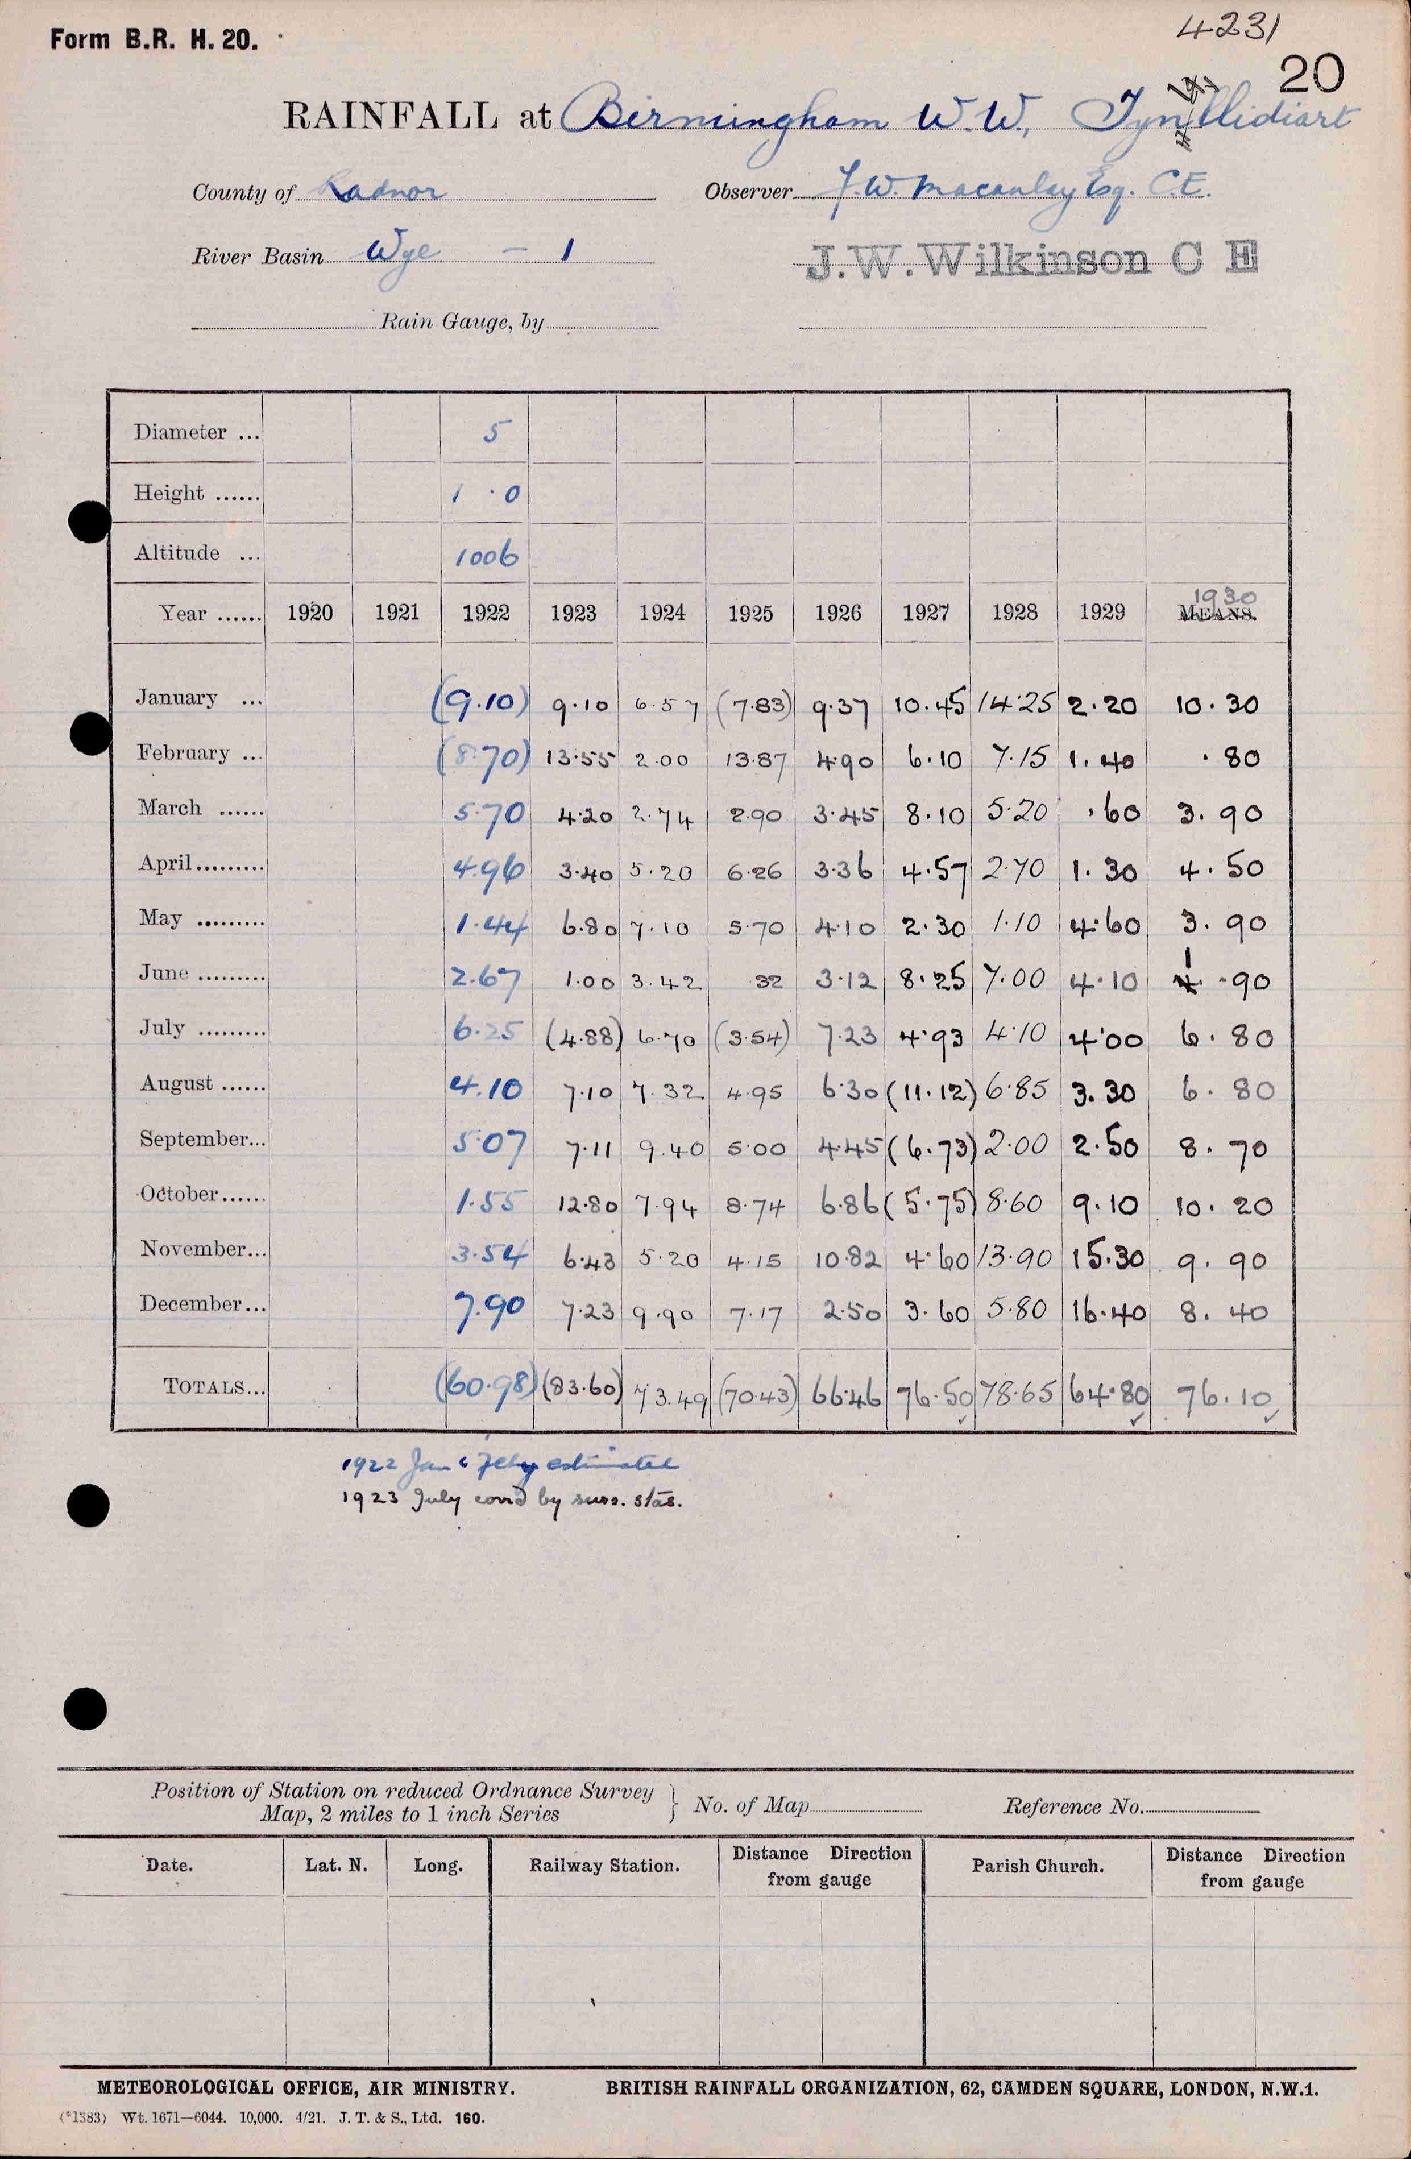 Form B.R. H. 20.
4231
20
RAINFALL at Birmingham W.W., Tyn llidiart
County of Radnor
Observer F.W. Macaulay Esq. C.E.
River Basin Wye — 1
J.W. Wilkinson C E
Rain Gauge, by
Diameter ... 5
Height ...... 1 · 0
Altitude ... 1006
Year ...... 1920 1921 1922 1923 1924 1925 1926 1927 1928 1929 1930 MEANS.
January ... (9.10) 9.10 6.57 (7.83) 9.37 10.45 14.25 2.20 10.30
February ... (8.70) 13.55 2.00 13.87 4.90 6.10 7.15 1.40 .80
March ...... 5.70 4.20 2.74 2.90 3.45 8.10 5.20 .60 3.90
April......... 4.96 3.40 5.20 6.26 3.36 4.57 2.70 1.30 4.50
May ......... 1.44 6.80 7.10 5.70 4.10 2.30 1.10 4.60 3.90
June ......... 2.67 1.00 3.42 .32 3.12 8.25 7.00 4.10 1.90
July ......... 6.25 (4.88) 6.70 (3.54) 7.23 4.93 4.10 4.00 6.80
August ...... 4.10 7.10 7.32 4.95 6.30 (11.12) 6.85 3.30 6.80
September... 5.07 7.11 9.40 5.00 4.45 (6.73) 2.00 2.50 8.70
October...... 1.55 12.80 7.94 8.74 6.86 (5.75) 8.60 9.10 10.20
November... 3.54 6.43 5.20 4.15 10.82 4.60 13.90 15.30 9.90
December... 7.90 7.23 9.90 7.17 2.50 3.60 5.80 16.40 8.40
TOTALS... (60.98) (83.60) 73.49 (70.43) 66.46 76.50 78.65 64.80 76.10
1922 Jan & Feby estimated
1923 July cor'd by surr. stas.
Position of Station on reduced Ordnance Survey
Map, 2 miles to 1 inch Series
No. of Map
Reference No.
Date. Lat. N. Long. Railway Station. Distance Direction from gauge Parish Church. Distance Direction from gauge
METEOROLOGICAL OFFICE, AIR MINISTRY.
BRITISH RAINFALL ORGANIZATION, 62, CAMDEN SQUARE, LONDON, N.W.1.
(*1383) Wt. 1671—6044. 10,000. 4/21. J. T. & S., Ltd. 160.